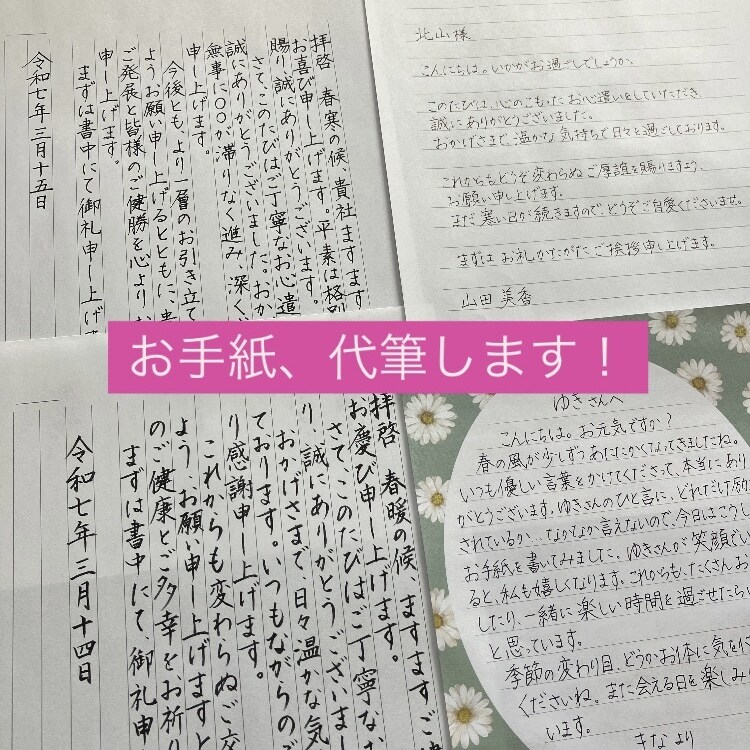 拝啓 春寒の候、貴社ますます
お喜び申し上げます。平素は格別
賜り誠にありがとうございます。
さて、このたびはご丁寧なお心遣
誠にありがとうございました。おか
無事に〇〇が滞りなく進み、深く
申し上げます。
今後とも、より一層のお引き立て
ようお願い申し上げるとともに、貴
ご発展と皆様のご健勝を心よりお
申し上げます。
まずは書中にて御礼申し上げま
令和七年三月十五日
北山様
こんにちは。いかがお過ごしでしょうか。
このたびは、心のこもったお心遣いをしていただき
誠にありがとうございました。
おかげさまで、温かな気持ちで日々を過ごしております。
これからもどうぞ変わらぬご厚誼を賜りますよう、
お願い申し上げます。
まだ寒い日が続きますので、どうぞご自愛くださいませ。
まずはお礼かたがたご挨拶申し上げます。
山田美香
お手紙、代筆します！
拝啓 春暖の候、ますますご
お慶び申し上げます。
さて、このたびはご丁寧な
り、誠にありがとうございまし
おかげさまで、日々温かな気
ております。いつもながらのご
り感謝申し上げます。
これからも変わらぬご
よう、お願い申し上げますと
のご健康とご多幸をお祈り
まずは書中にて、御礼申
令和七年三月十四日
ゆきさんへ
こんにちは。お元気ですか？
春の風が少しずつあたたかくなってきましたね。
いつも優しい言葉をかけてくださって、本当にあり
がとうございます。ゆきさんのひと言に、どれだけ励
されているか…なかなか言えないので、今日はこうし
お手紙を書いてみました。ゆきさんが笑顔でい
ると、私も嬉しくなります。これからも、たくさんお
したり、一緒に楽しい時間を過ごせたらい
と思っています。
季節の変わり目、どうかお体に気を付
くださいね。また会える日を楽しみ
います。
きなより